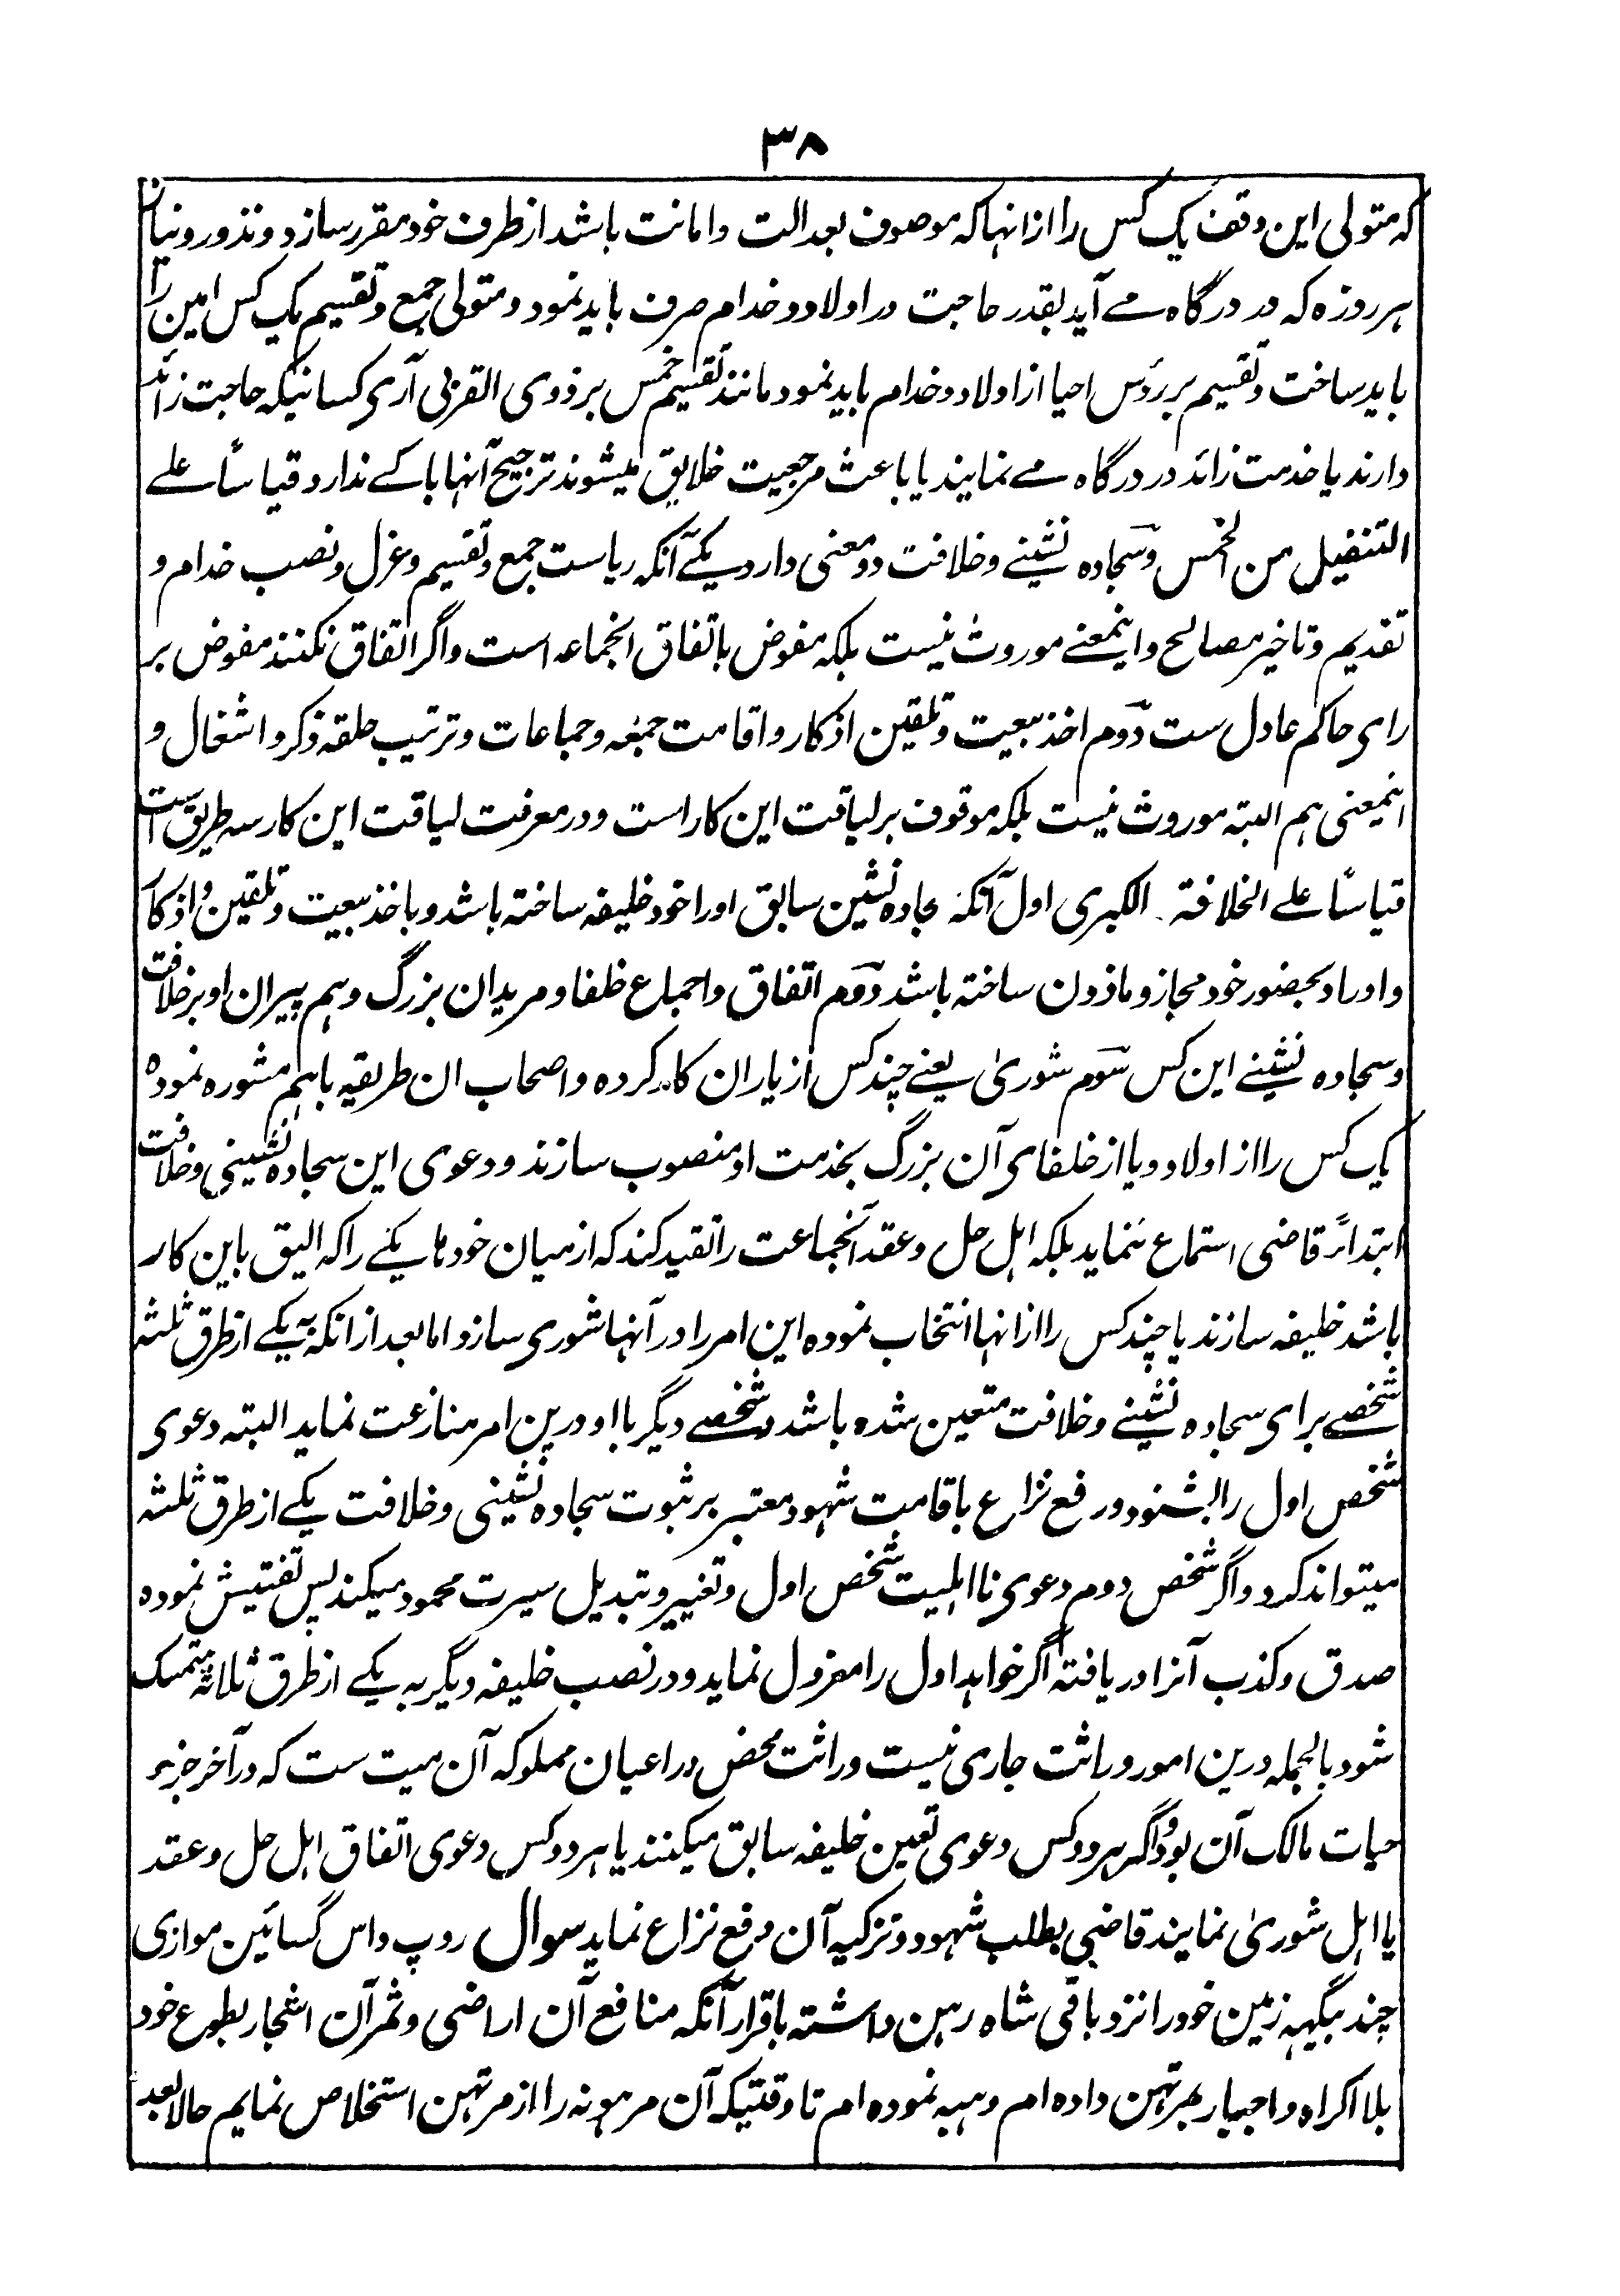 ۳۸
که متولی این وقف یک کس را ازانها که موصوف بعدالت و امانت باشد از طرف خود مقرر سازد و نذور و نیاز
هر روزه که در درگاه مے آید بقدر حاجت در اولاد و خدام صرف باید نمود و متولی جمع و تقسیم یک کس امین را
باید ساخت و تقسیم بر رؤس احیا از اولاد و خدام باید نمود مانند تقسیم خمس بر ذوی القربی آری کسانیکه حاجت زائد
دارند یا خدمت زائد در درگاه مے نمایند یا باعث مرجعیت خلایق میشوند ترجیح آنها باکے ندارد قیاساً علے
التنفیل من الخمس و سجاده نشینے و خلافت دو معنی دارد یکے آنکه ریاست جمع و تقسیم و عزل و نصب خدام و
تقدیم و تاخیر مصالح و اینمعنے موروث نیست بلکه مفوض باتفاق انجماعه است و اگر اتفاق نکنند مفوض بر
رای حاکم عادل ست دوم اخذ بیعیت و تلقین اذکار و اقامت جمعه و جماعات و ترتیب حلقه ذکر و اشغال و
اینمعنی هم البته موروث نیست بلکه موقوف بر لیاقت این کار است و در معرفت لیاقت این کار سه طریق ست
قیاساً علے الخلافة الکبری اول آنکه سجاده نشین سابق او را خود خلیفه ساخته باشد و باخذ بیعیت و تلقین و اذکار
و اوراد بحضور خود مجاز و ماذون ساخته باشد دوم اتفاق و اجماع خلفا و مریدان بزرگ و هم پیران او بر خلافت
و سجاده نشینے این کس سوم شوریٰ یعنے چند کس از یاران کار کرده و اصحاب ان طریقه باهم مشوره نموده
یک کس را از اولاد و یا از خلفای آن بزرگ بخدمت او منصوب سازند و دعوی این سجاده نشینی و خلافت
ابتداءً قاضی استماع ننماید بلکه اهل حل و عقد آنجماعت را تقید کند که از میان خودها یکے را که الیق باین کار
باشد خلیفه سازند یا چند کس را ازانها انتخاب نموده این امر را در آنها شوری سازد اما بعد ازانکه به یکے از طرق ثلثه
شخصے برای سجاده نشینے و خلافت متعین شده باشد و شخصے دیگر با او درین امر منازعت نماید البته دعوی
شخص اول را بشنود و رفع نزاع باقامت شهود معتبر بر ثبوت سجاده نشینی و خلافت یکے از طرق ثلثه
میتواند کرد و اگر شخص دوم دعوی نااهلیت شخص اول و تغییر و تبدیل سیرت محمود میکند پس تفتیش نموده
صدق و کذب آنرا دریافته اگر خواهد اول را معزول نماید و در نصب خلیفه دیگر به یکے از طرق ثلاثه متمسک
شود بالجمله درین امور وراثت جاری نیست وراثت محض در اعیان مملوکه آن میت ست که در آخر جزء
حیات مالک آن بود و اگر هر دو کس دعوی تعین خلیفه سابق میکنند یا هر دو کس دعوی اتفاق اهل حل و عقد
یا اهل شوریٰ نمایند قاضی بطلب شهود و تزکیه آن رفع نزاع نماید سوال روپ داس گسائین موازی
چند بیگهه زمین خود را نزد باقی شاه رهن داشته باقرار آنکه منافع آن اراضی و ثمر آن اشجار بطوع خود
بلا اکراه و اجبار بمرتهن داده ام و هبه نموده ام تا وقتیکه آن مرهونه را از مرتهن استخلاص نمایم حالا بعد